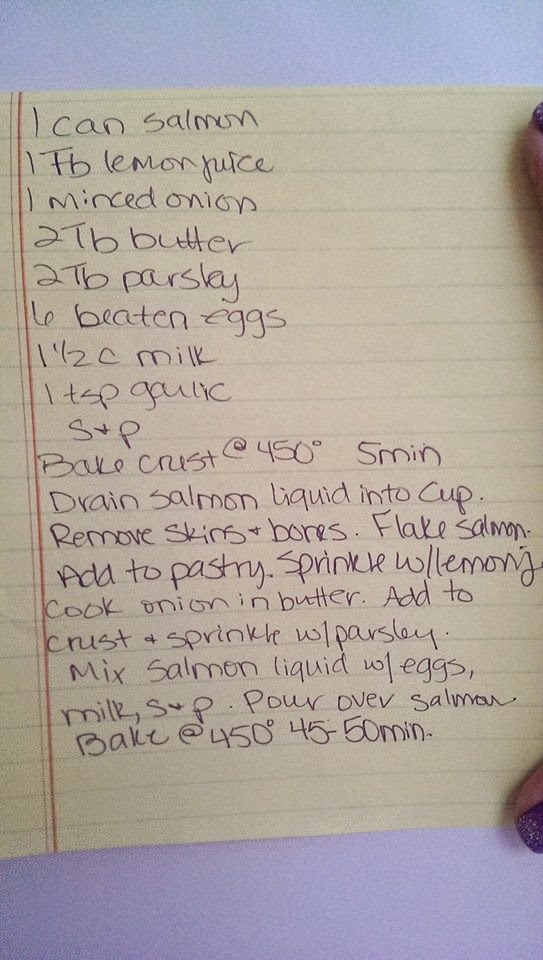 1 can salmon
1 Tb lemon juice
1 minced onion
2 Tb butter
2 Tb parsley
6 beaten eggs
1 1/2 c milk
1 tsp garlic
S+p
Bake crust @ 450° 5min
Drain salmon liquid into cup.
Remove skins + bones. Flake salmon.
Add to pastry. Sprinkle w/lemon j
Cook onion in butter. Add to
crust + sprinkle w/parsley.
Mix salmon liquid w/ eggs,
milk, S+p. Pour over salmon
Bake @ 450° 45-50min.